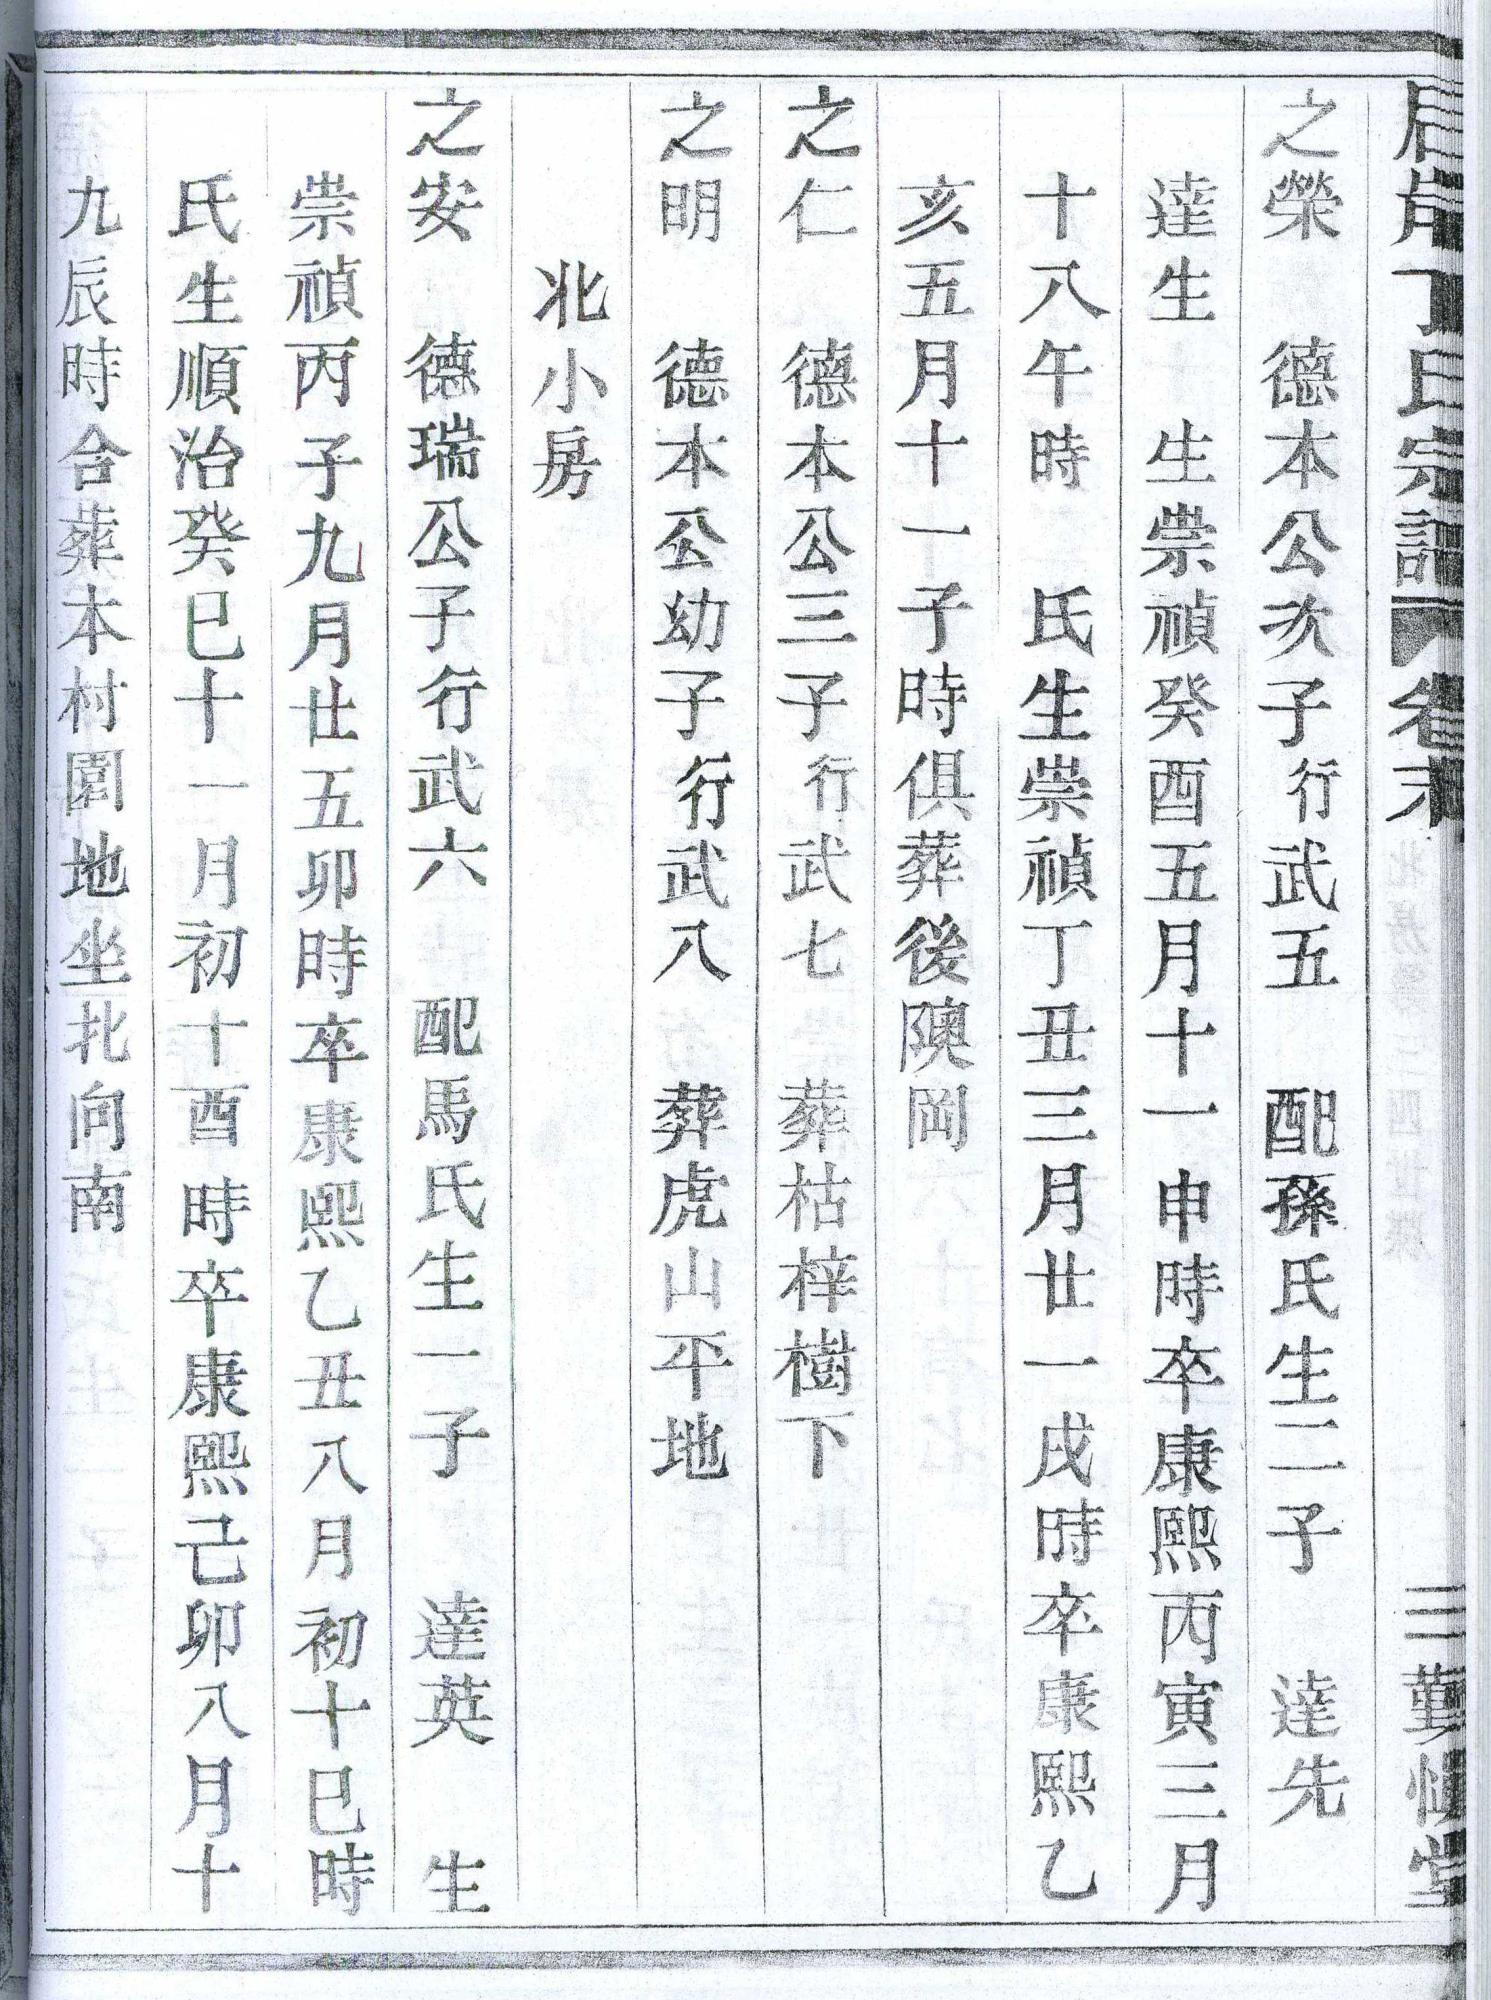 丁氏宗譜 卷末 三 勤愼堂
之榮 德本公次子行武五 配孫氏生二子 達先
達生 生崇禎癸酉五月十一申時卒康熙丙寅三月
十八午時 氏生崇禎丁丑三月廿一戌時卒康熙乙
亥五月十一子時俱葬後隩岡
之仁 德本公三子行武七 葬枯梓樹下
之明 德本公幼子行武八 葬虎山平地
北小房
之安 德瑞公子行武六 配馬氏生一子 達英 生
崇禎丙子九月廿五卯時卒康熙乙丑八月初十巳時
氏生順治癸巳十一月初十酉時卒康熙己卯八月十
九辰時合葬本村園地坐北向南